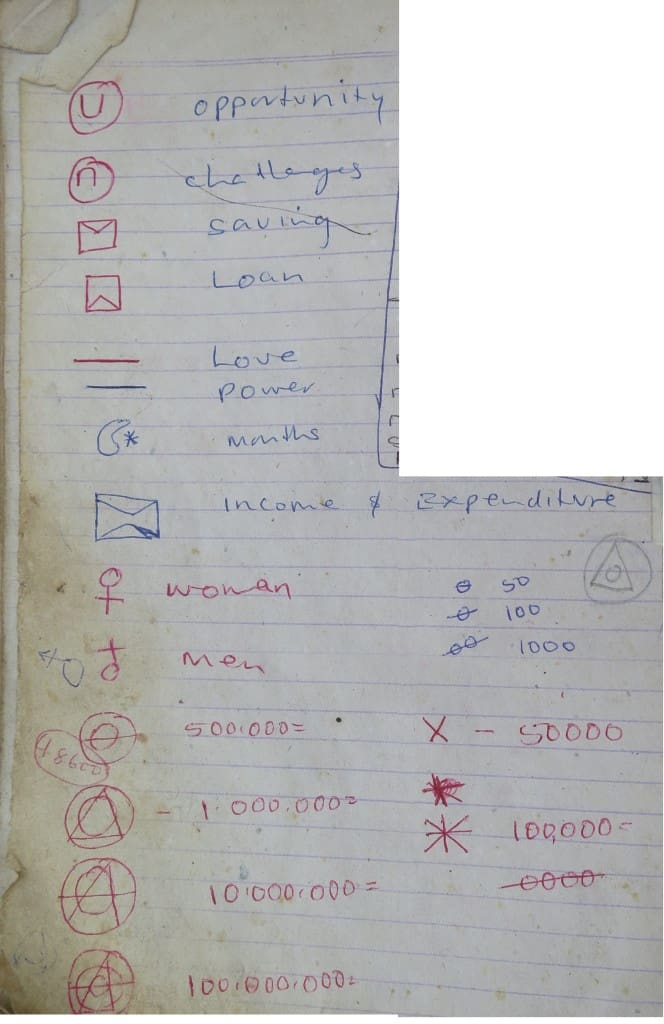 U opportunity
n challenges
saving
Loan
Love
power
months
Income & Expenditure
woman
50
100
men
1000
500.000=
X - 50000
- 1.000.000=
100,000=
10.000.000=
0000
100.000.000=